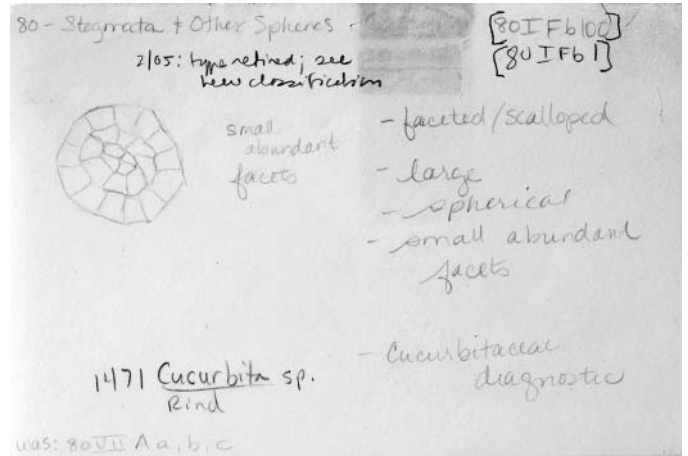 80 - Stegmata + Other Spheres -
[80IFb100]
[80IFb1]
2/05: type retired; see
new classification
small
abundant
facets
- faceted/scalloped
- large
- spherical
- small abundant
facets
- Cucurbitaceae
diagnostic
1471 Cucurbita sp.
Rind
was: 80VII A a, b, c